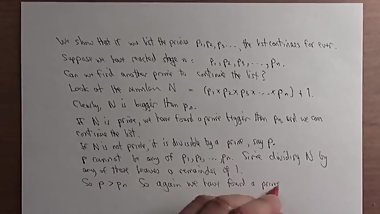 We show that if we list the primes p₁, p₂, p₃, ..., the list continues for ever.
Suppose we have reached stage n: p₁, p₂, p₃, ..., pₙ.
Can we find another prime to continue the list?
Look at the number N = (p₁ × p₂ × p₃ × ... × pₙ) + 1.
Clearly, N is bigger than pₙ.
If N is prime, we have found a prime bigger than pₙ and we can
continue the list.
If N is not prime, it is divisible by a prime, say p.
p cannot be any of p₁, p₂, ... pₙ. Since dividing N by
any of these leaves a remainder of 1.
So p > pₙ So again we have found a prime